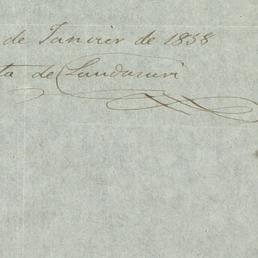 de Janvier de 1838
ta de Landazuri